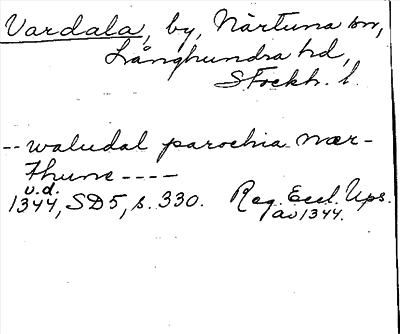 Vardala, by, Närtuna sn,
Långhundra hd,
Stockh. l.
-- waludal parochia Nær-
thune ----
u.d.
1344, SD5, s. 330. Reg. Eccl. Ups.
av 1344.